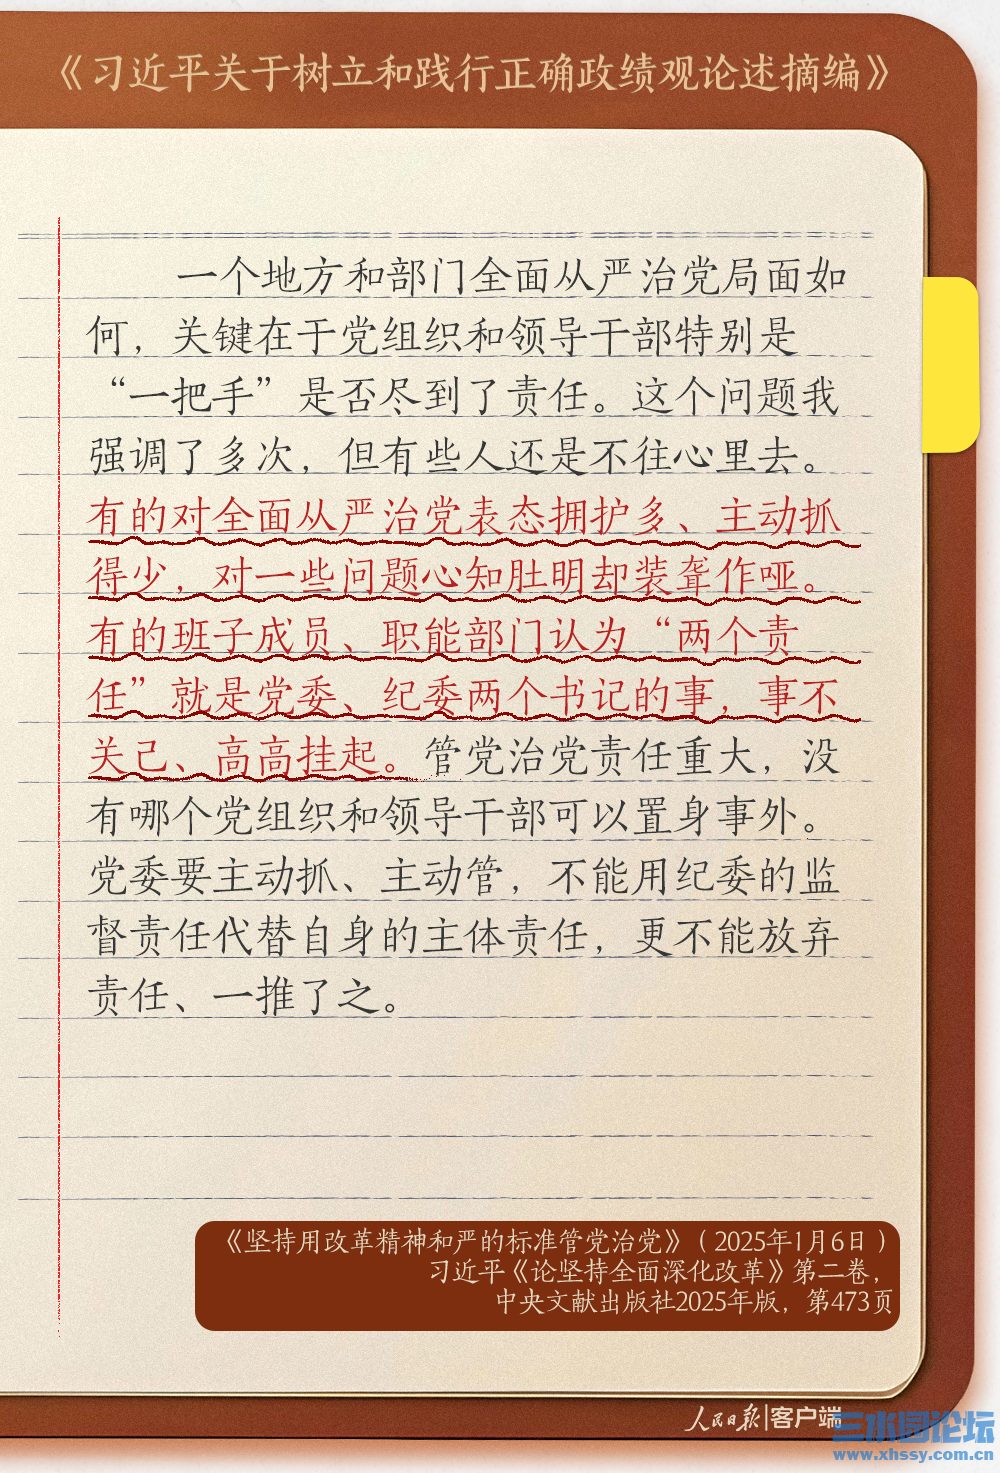 《习近平关于树立和践行正确政绩观论述摘编》
一个地方和部门全面从严治党局面如
何，关键在于党组织和领导干部特别是
“一把手”是否尽到了责任。这个问题我
强调了多次，但有些人还是不往心里去。
有的对全面从严治党表态拥护多、主动抓
得少，对一些问题心知肚明却装聋作哑。
有的班子成员、职能部门认为“两个责
任”就是党委、纪委两个书记的事，事不
关己、高高挂起。管党治党责任重大，没
有哪个党组织和领导干部可以置身事外。
党委要主动抓、主动管，不能用纪委的监
督责任代替自身的主体责任，更不能放弃
责任、一推了之。
《坚持用改革精神和严的标准管党治党》（2025年1月6日）
习近平《论坚持全面深化改革》第二卷，
中央文献出版社2025年版，第473页
人民日报|客户端
三水园论坛
www.xhssy.com.cn